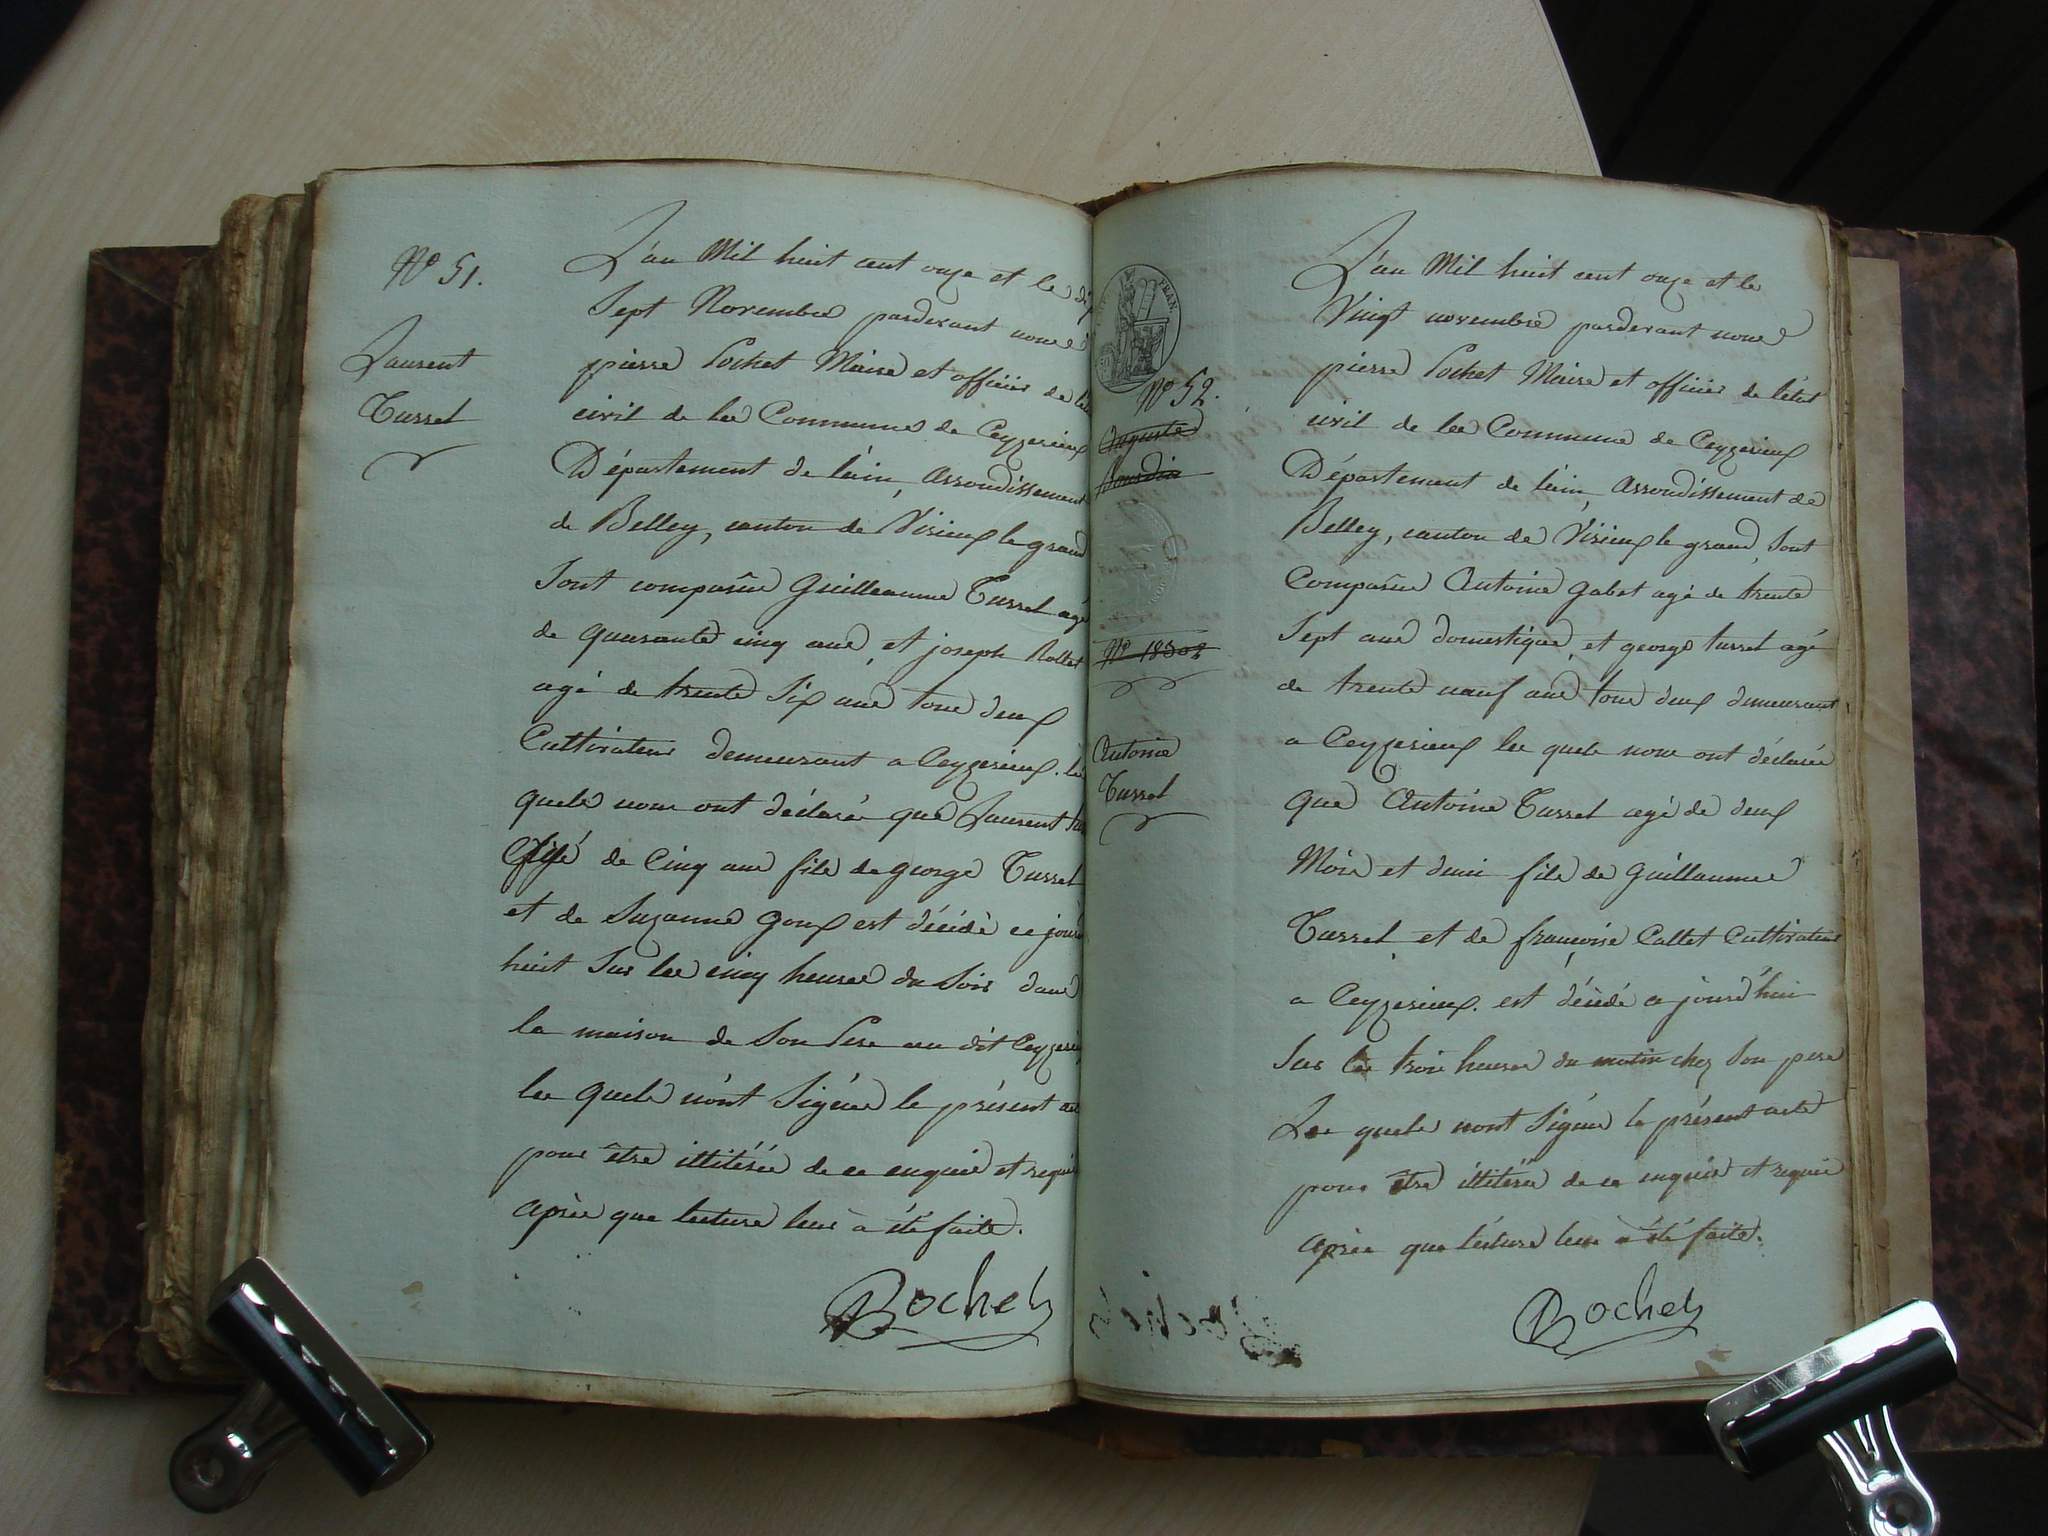 N° 51.
Laurent
Turrel
L'an Mil huit cent onze et le dix
Sept Novembre pardevant nous
pierre Rochet Maire et officier de l'é
civil de la Commune de Ceyzerieux
Département de l'ain, arrondissement
de Belley, canton de Virieux le grand
Sont comparûs Guillaume Turrel agé
de quarante cinq ans, et joseph Rollet
agé de trente Six ans tous deux
Cultivateurs demeurant a Ceyzerieux. les
quels nous ont déclarés que Laurent tur
agé de Cinq ans fils de george Turrel
et de Suzanne Goux est décédé ce jourd
huit Sur les cinq heures du Soir dans
la maison de Son Pere au dit Ceyzerieu
les quels n'ont Signés le présent acte
pour être illitérés de ce enquis et requis
après que lecture leur a été faite.
Rochet
FRAN.
N° 52.
Auguste
Bourdin
N° 18302
Antoine
Turrel
L'an Mil huit cent onze et le
Vingt novembre pardevant nous
pierre Rochet Maire et officier de l'état
civil de la Commune de Ceyzerieux
Département de l'ain, arrondissement de
Belley, canton de Virieux le grand, Sont
Comparûs Antoine Gabet agé de trente
Sept ans domestique, et george turrel agé
de trente neuf ans tous deux demeurant
a Ceyzerieux les quels nous ont déclarés
que Antoine Turrel agé de deux
Mois et demi fils de Guillaume
Turrel et de françoise Callet Cultivateurs
a Ceyzerieux. est décédé ce jourd'hui
Sur les trois heures du matin chez Son pere
Les quels n'ont Signés le présent acte
pour être illitérés de ce enquis et requis
après que lecture leur a été faite.
Rochet